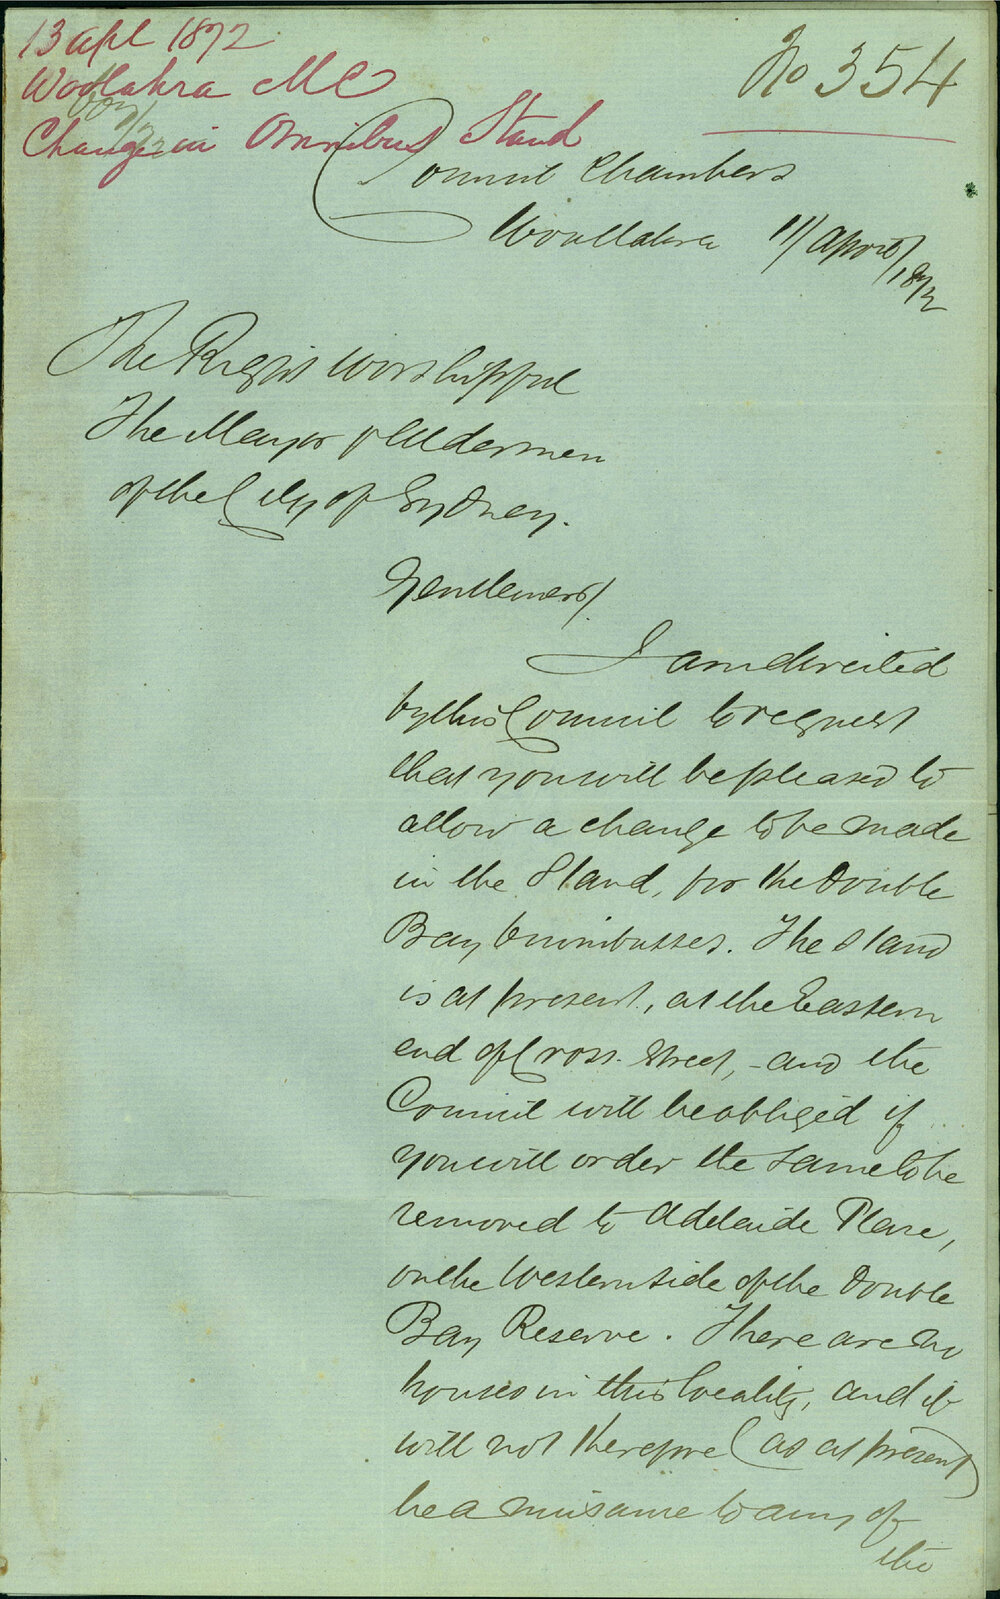 13 Apl 1872
Woollahra M C
Change in Omnibus Stand
No 354
Council Chambers
Woollahra 11/ April/1872
The Right Worshipful
The Mayor & Aldermen
of the City of Sydney.
Gentlemen/.
I am directed
by this Council to request
that you will be pleased to
allow a change to be made
in the Stand, for the Double
Bay Omnibusses. The Stand
is at present, at the Eastern
end of Cross Street, - and the
Council will be obliged if
you will order the same to be
removed to Adelaide Place,
on the Western side of the Double
Bay Reserve. There are no
houses in this locality, and it
will not therefore (as at present)
be a nuisance to any of
the